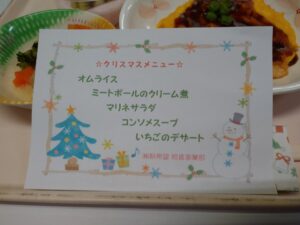 ☆クリスマスメニュー☆
オムライス
ミートボールのクリーム煮
マリネサラダ
コンソメスープ
いちごのデザート